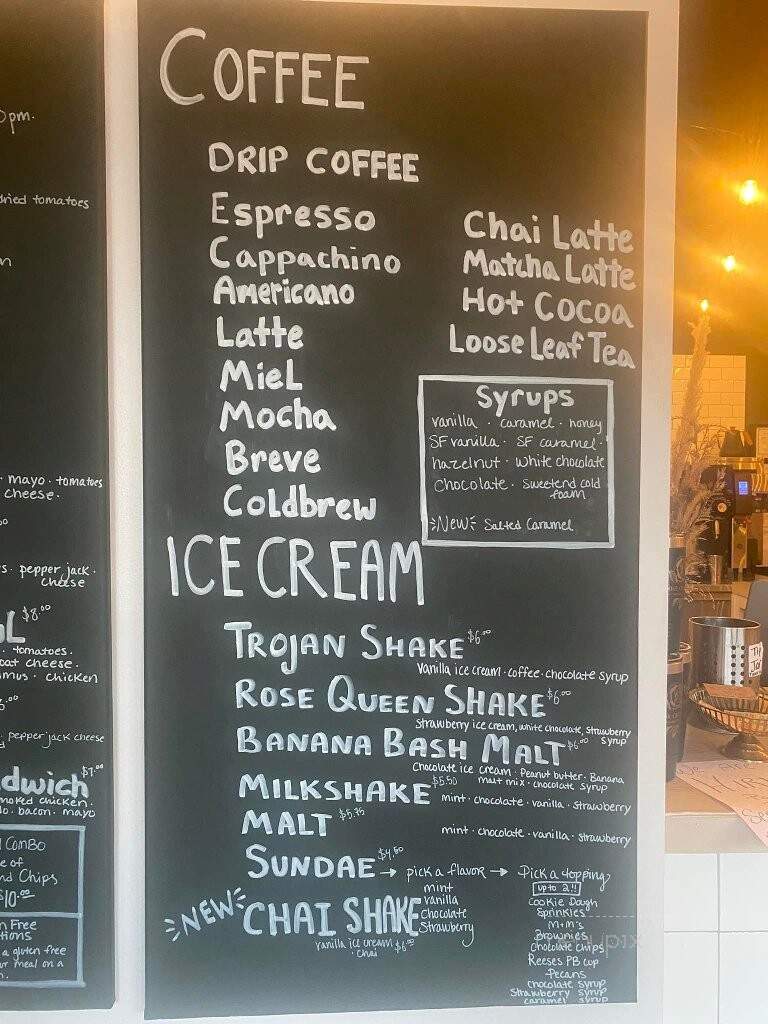 COFFEE
DRIP COFFEE
Espresso
Cappachino
Americano
Latte
Miel
Mocha
Breve
Coldbrew
Chai Latte
Matcha Latte
Hot Cocoa
Loose Leaf Tea
Syrups
vanilla · caramel · honey
SF vanilla · SF caramel ·
hazelnut · white chocolate
chocolate · sweetend cold
foam
New Salted Caramel
ICE CREAM
TROJAN SHAKE $6.00
Vanilla ice cream · coffee · chocolate syrup
ROSE QUEEN SHAKE $6.00
Strawberry ice cream, white chocolate, strawberry
syrup
BANANA BASH MALT $6.00
Chocolate ice cream · Peanut butter · Banana
malt mix · chocolate syrup
MILKSHAKE $5.50
mint · chocolate · vanilla · strawberry
MALT $5.75
mint · chocolate · vanilla · strawberry
SUNDAE $4.50 → pick a flavor → Pick a topping
mint
vanilla
Chocolate
Strawberry
up to 2!!
Cookie Dough
Sprinkles
M+M's
Brownies
Chocolate chips
Reeses PB cup
Pecans
Chocolate syrup
Strawberry syrup
caramel syrup
NEW CHAI SHAKE
vanilla ice cream $6.00
· chai
0pm.
dried tomatoes
n
· mayo · tomatoes
cheese.
s · pepper jack ·
cheese
L $8.00
· tomatoes.
oat cheese.
mus · chicken
pepper jack cheese
dwich $7.00
moked chicken.
o · bacon · mayo
l Combo
e of
nd Chips
$10.00
n Free
tions
a gluten free
ur meal on a
n.